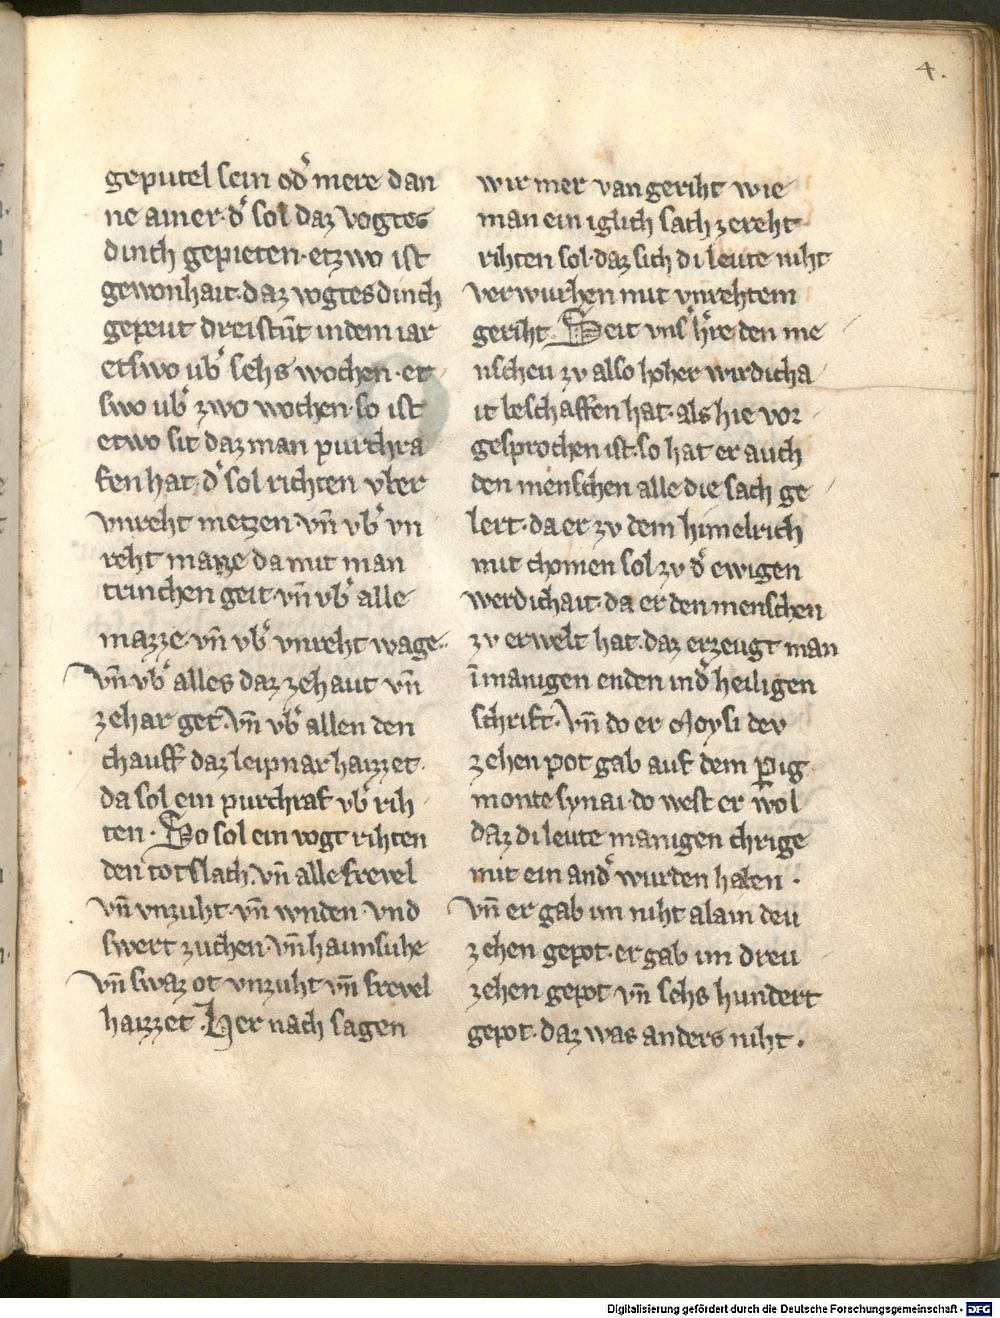 4.
geputel sein od᷑ mere dan
ne ainer· d᷑ sol daz vogtes
dinch gepieten· etzwo ist
gewonhait· daz vogtes dinch
gepeut dreistūt in dem iar
etswo ub᷑ sehs wochen· et
swo ub᷑ zwo wochen· so ist
etwo sit daz man purchra
fen hat· d᷑ sol richten vber
vnreht metzen vn̄ vb᷑ vn
reht mazze da mit man
trinchen geit· vn̄ vb᷑ alle
mazze· vn̄ vb᷑ vnreht wage··
vn̄ vb᷑ alles daz ze haut vn̄
ze har get· vn̄ vb᷑ allen den
chauff daz leipnar haizzet·
da sol ein purchraf vb᷑ rih
ten· So sol ein vogt rihten
den totslach· vn̄ alle frevel
vn̄ vnzuht· vn̄ wnden vnd
swert zuchen· vn̄ haimsuhe
vn̄ swaz ot vnzuht vn̄ frevel
haizzet· Her nach sagen
wir mer van geriht wie
man ein iglich sach ze reht
rihten sol· daz sich di leute niht
verwurhen mit vnrehtem
geriht· Seit vns᷑ h᷑re den me
nschen zv also hoher wirdicha
it beschaffen hat· als hie vor
gesprochen ist· so hat er auch
den menschen alle die sach ge
lert· da er zv dem himelrich
mit chomen sol zv d᷑ ewigen
werdichait· da er den menschen
zv erwelt hat· daz erzeugt man
ī manigen enden in d᷑ heiligen
schrift· vn̄ do er Moysi dev
zehen pot gab auf dem perg
monte synai· do west er wol
daz di leute manigen chrige
mit ein and᷑ wurden haben·
vn̄ er gab im niht alain deu
zehen gepot· er gab im dreu
zehen gepot vn̄ sehs hundert
gepot· daz was anders niht·
Digitalisierung gefördert durch die Deutsche Forschungsgemeinschaft - DFG